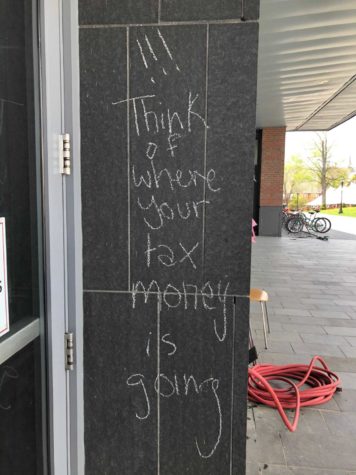 !!!
Think
of
where
your
tax
money
is
going